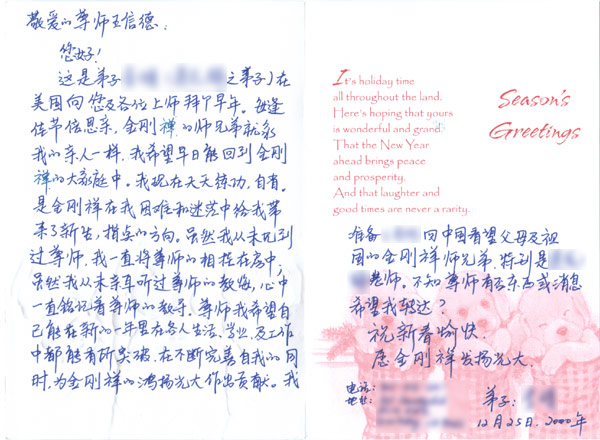 敬爱的尊师王信德:
您好!
这是弟子 之弟子)在
美国向您及各位上师拜个早年。每逢
佳节倍思亲,金刚禅的师兄弟就象
我的亲人一样,我希望早日能回到金刚
禅的大家庭中。我现在天天练功,自省。
是金刚禅在我困难和迷茫中给我带
来了新生,指点的方向。虽然我从未见到
过尊师,我一直将尊师的相挂在房中,
虽然我从未亲耳听过尊师的教诲,心中
一直铭记着尊师的教导,尊师我希望自
己能在新的一年里在各人生活、学业、及工作
中都能有所突破,在不断完善自我的同
时,为金刚禅的鸿扬光大作出贡献。我
It's holiday time
all throughout the land.
Here's hoping that yours
is wonderful and grand.
That the New Year
ahead brings peace
and prosperity,
And that laughter and
good times are never a rarity.
Season's
Greetings
准备 回中国看望父母及祖
国的金刚禅师兄弟,特别是
老师。不知尊师有否东西或消息
希望我转达?
祝新春愉快.
愿金刚禅发扬光大.
电话:
地址:
弟子:
12月25日.2000年